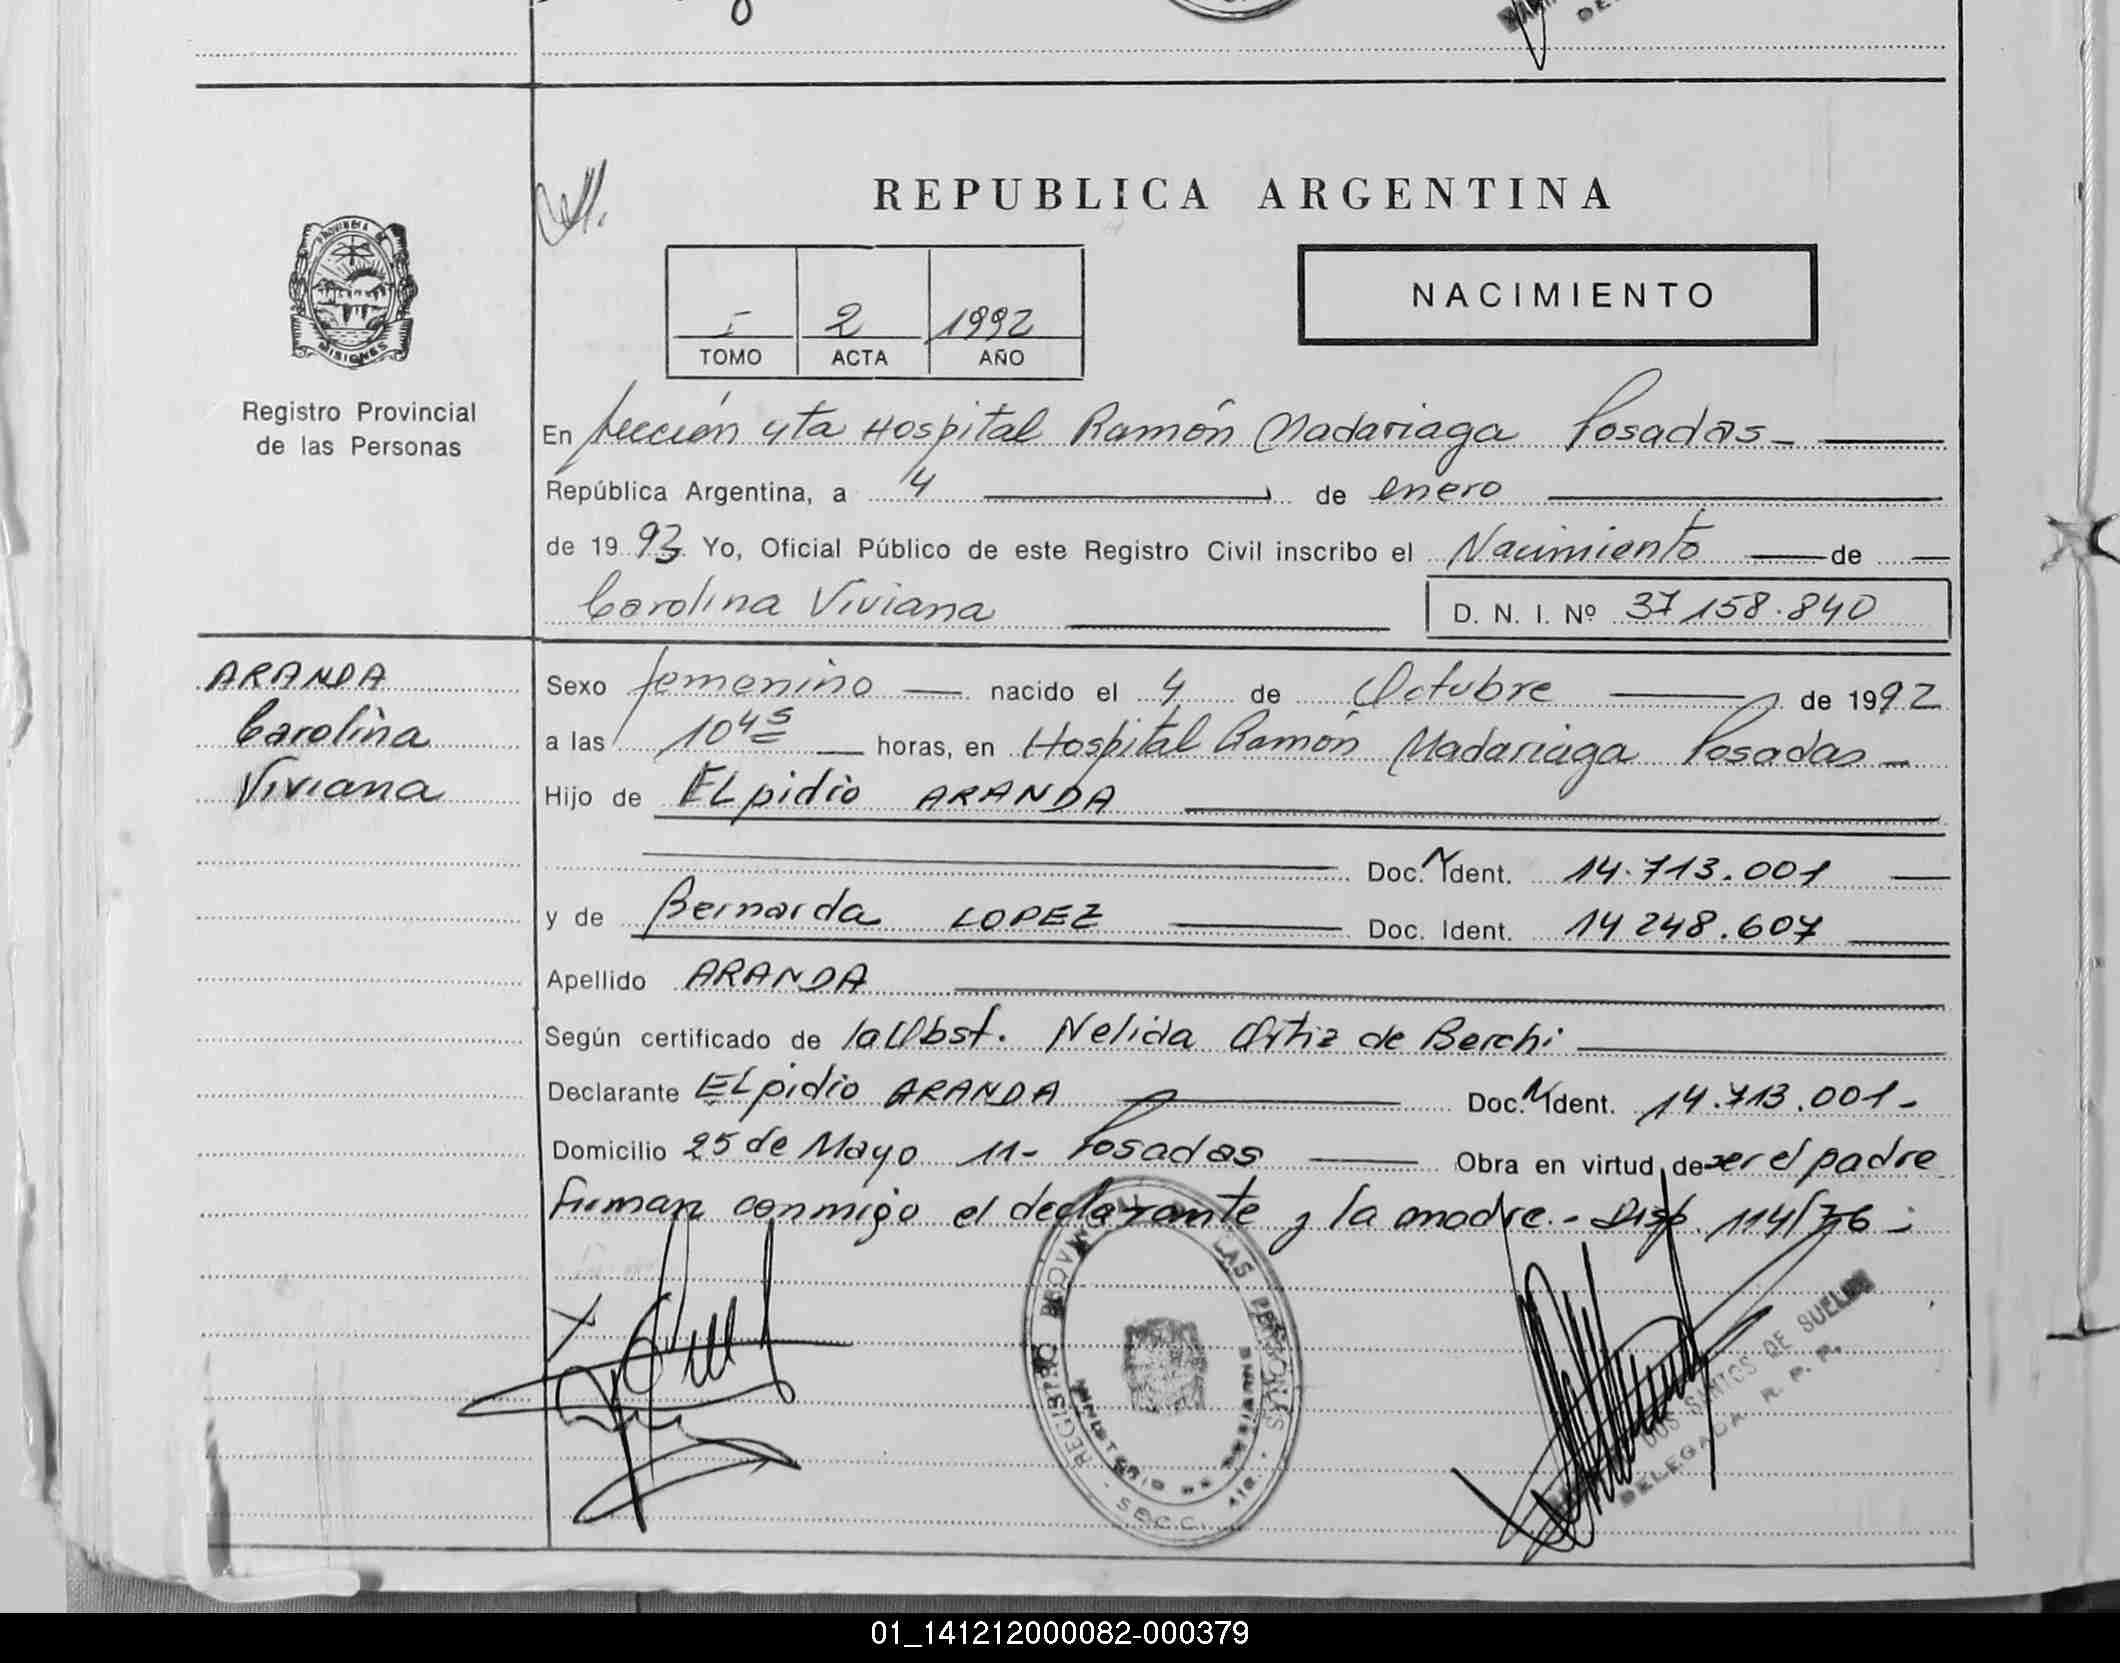 REPUBLICA ARGENTINA
PROVINCIA DE MISIONES
I 2 1992
TOMO ACTA AÑO
NACIMIENTO
Registro Provincial
de las Personas
En Sección 4ta Hospital Ramón Madariaga Posadas
República Argentina, a 4 de enero
de 1993 Yo, Oficial Público de este Registro Civil inscribo el Nacimiento de
Carolina Viviana D. N. I. Nº 37158.840
ARANDA
Carolina
Viviana
Sexo femenino nacido el 4 de Octubre de 1992
a las 10 45 horas, en Hospital Ramón Madariaga Posadas
Hijo de ELpidio ARANDA
Doc. N Ident. 14.713.001
y de Bernarda LOPEZ Doc. Ident. 14 248.607
Apellido ARANDA
Según certificado de la Obst. Nelida Ortiz de Berchi
Declarante ELpidio ARANDA Doc. N Ident. 14.713.001-
Domicilio 25 de Mayo 11- Posadas Obra en virtud de ser el padre
Firman conmigo el declarante y la madre.- Disp. 114/76
REGISTRO PROVINCIAL DE LAS PERSONAS
MINISTERIO DE
SECC.
DOS SANTOS DE SUELDO
DELEGADA R. P. P.
01_141212000082-000379